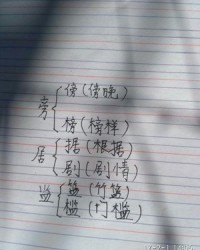 旁
傍(傍晚)
榜(榜样)
居
据(根据)
剧(剧情)
监
篮(竹篮)
槛(门槛)